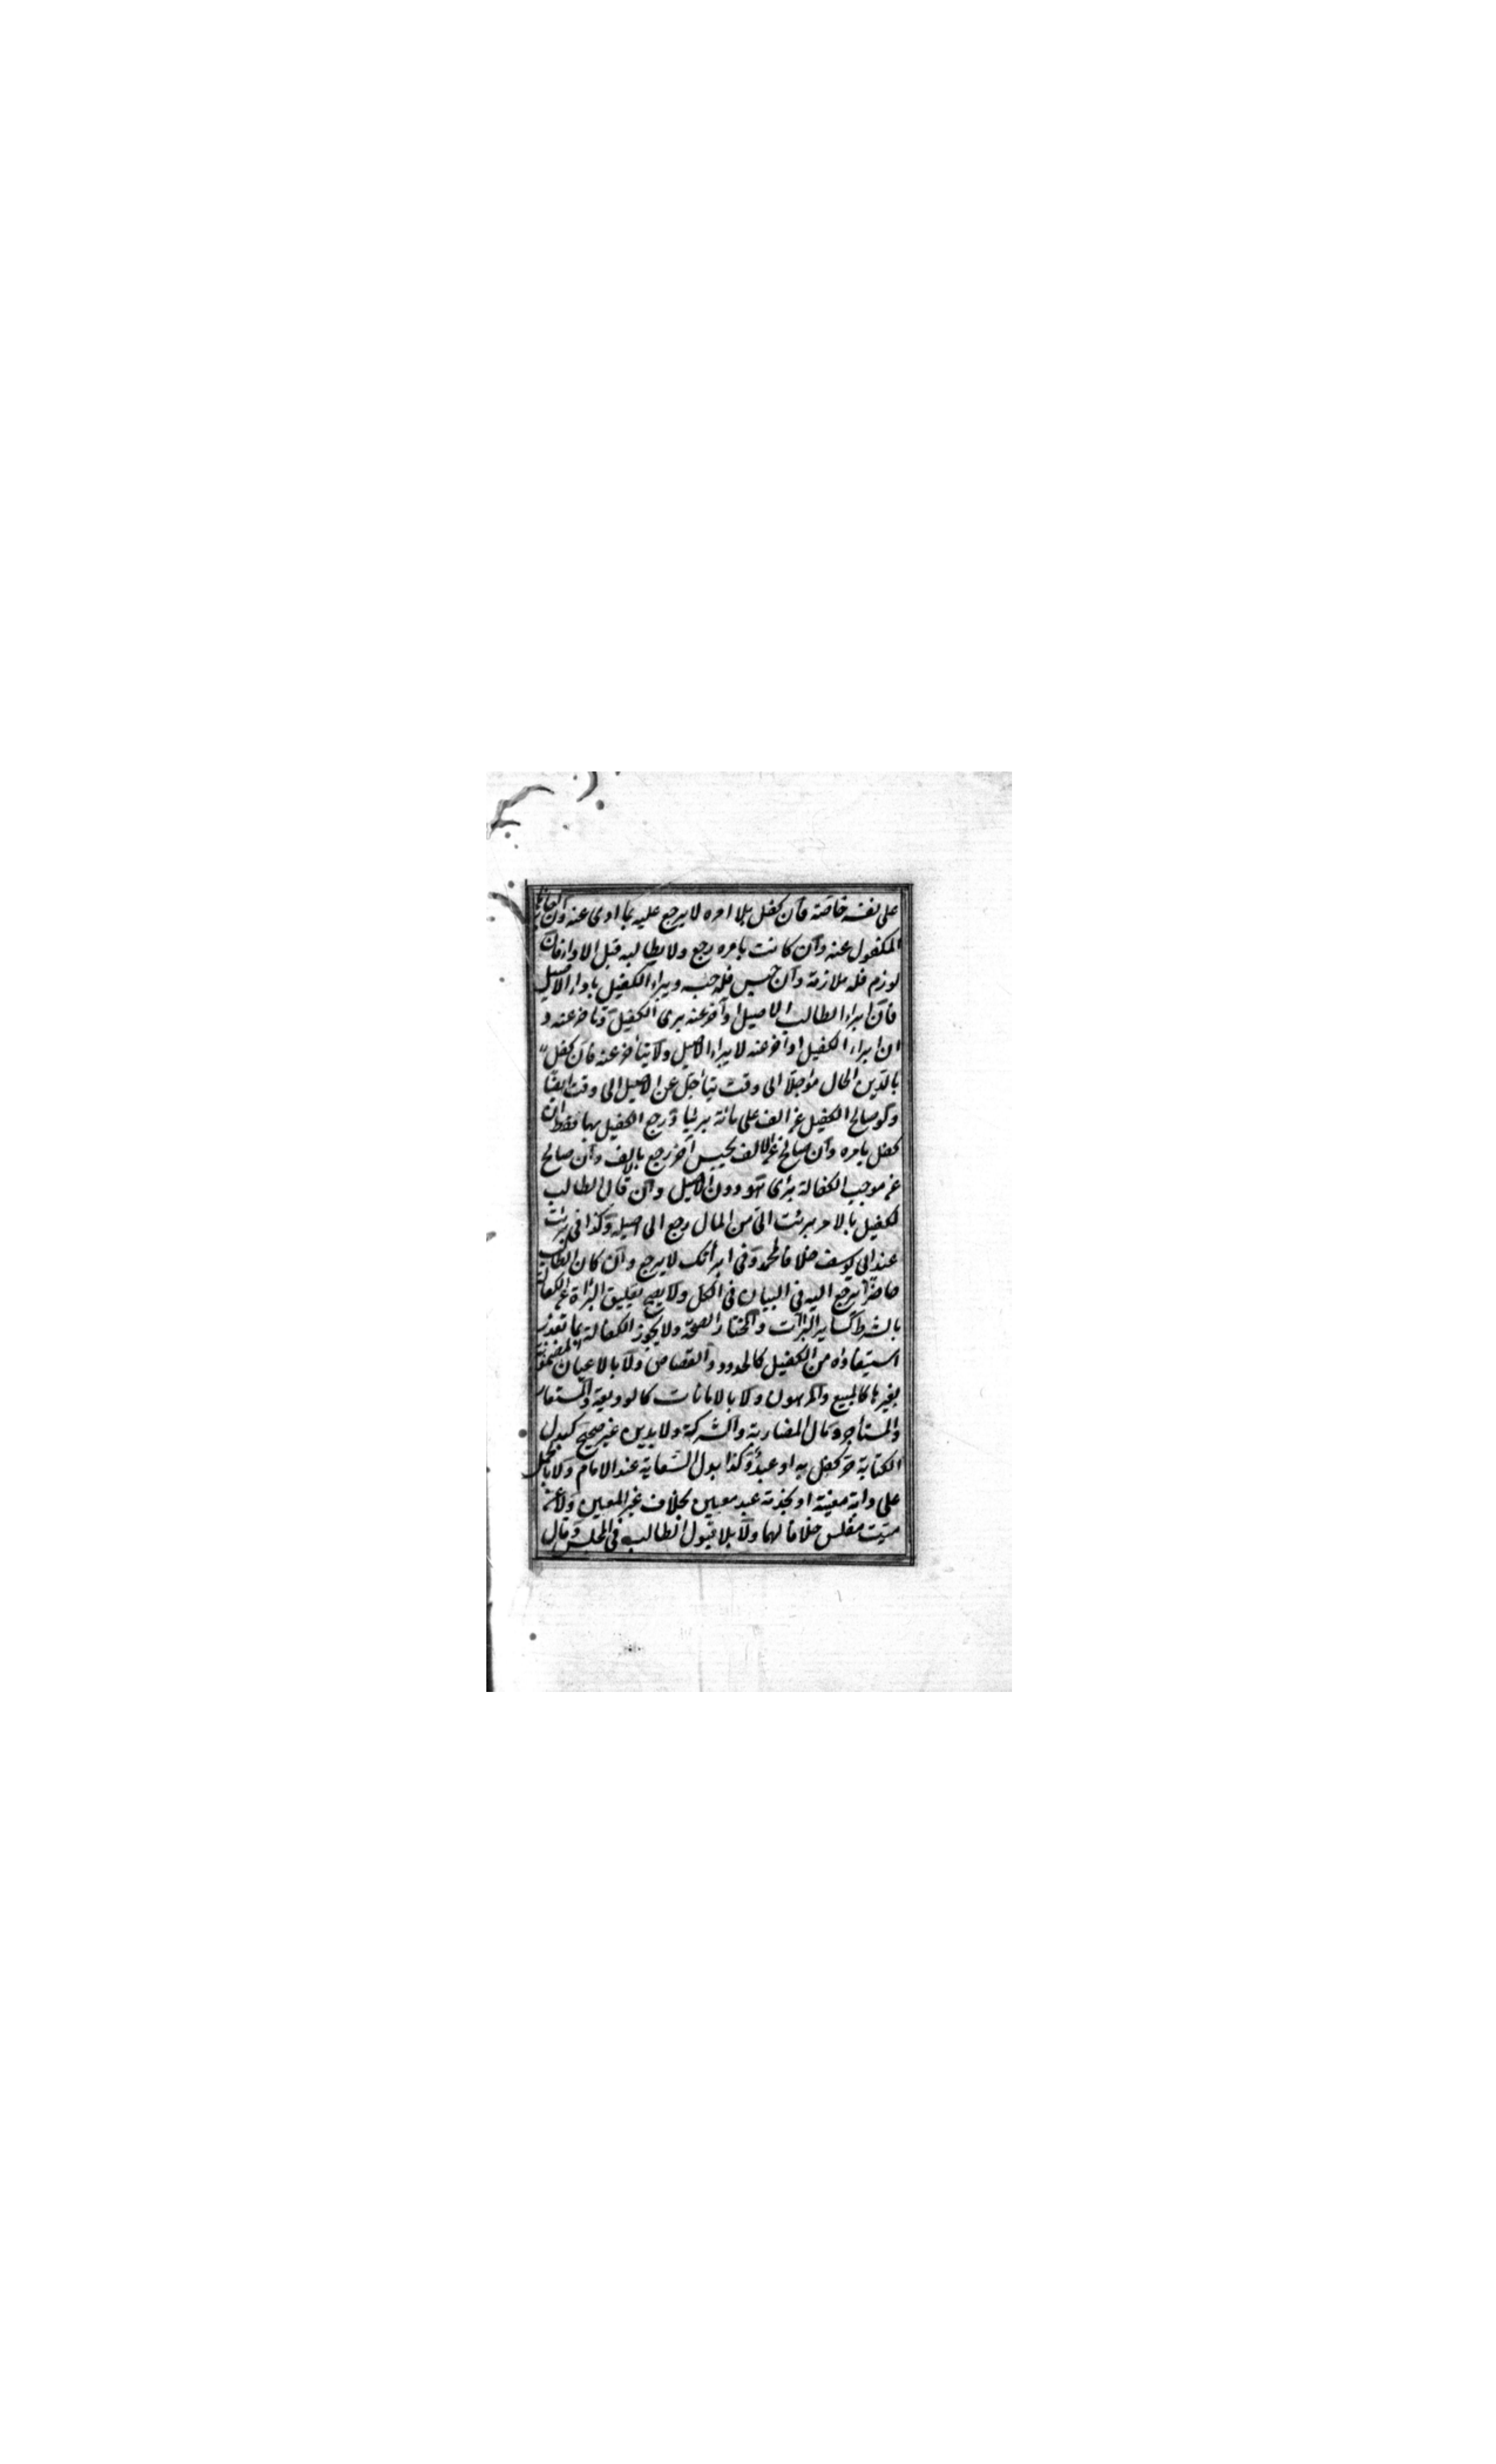 على نفسه خاصة فان كفل بلا امره لا يرجع عليه بما ادى عنه وان اجازها
المكفول عنه وان كانت بامره رجع ولا يطالبه قبل الاداء فان
لوزم فله ملازمة وان حبس فله حبسه ويبراء الكفيل باداء الاصيل
فان ابراء الطالب الاصيل او اخر عنه برئ الكفيل وتاخر عنه و
ان ابراء الكفيل او اخر عنه لا يبراء الاصيل ولا يتاخر عنه فان كفل
بالدين الحال مؤجلا الى وقت يتاجل عن الاصيل الى وقت ايضا
ولو صالح الكفيل عن الف على مائة برئيا ورجع الكفيل بها فقط ان
كفل بامره وان صالح عن الالف بجنس آخر رجع بالالف وان صالح
عن موجب الكفالة برئ هو دون الاصيل وان قال الطالب
للكفيل بالامر برئت الى من المال رجع الى اصيله وكذا فى برئت
عند ابى يوسف خلافا لمحمد وفى ابرأتك لا يرجع وان كان الطالب
حاضرا يرجع اليه فى البيان فى الكل ولا يصح تعليق البراة عن الكفالة
بالشرط كساير البراآت والمختار الصحة ولا يجوز الكفالة بما تعذر
استيفاؤه من الكفيل كالحدود والقصاص ولا بالاعيان المضمونة
بغيرها كالمبيع والمرهون ولا بالامانات كالوديعة والمستعار
والمستاجر ومال المضاربة والشركة ولا بدين غير صحيح كبدل
الكتابة حر كفل به او عبد وكذا بدل السعاية عند الامام ولا بالحمل
على دابة معينة او بخدمة عبد معين بخلاف غير المعين ولا عن
ميت مفلس خلافا لهما ولا بلا قبول الطالب فى المجلس وقال